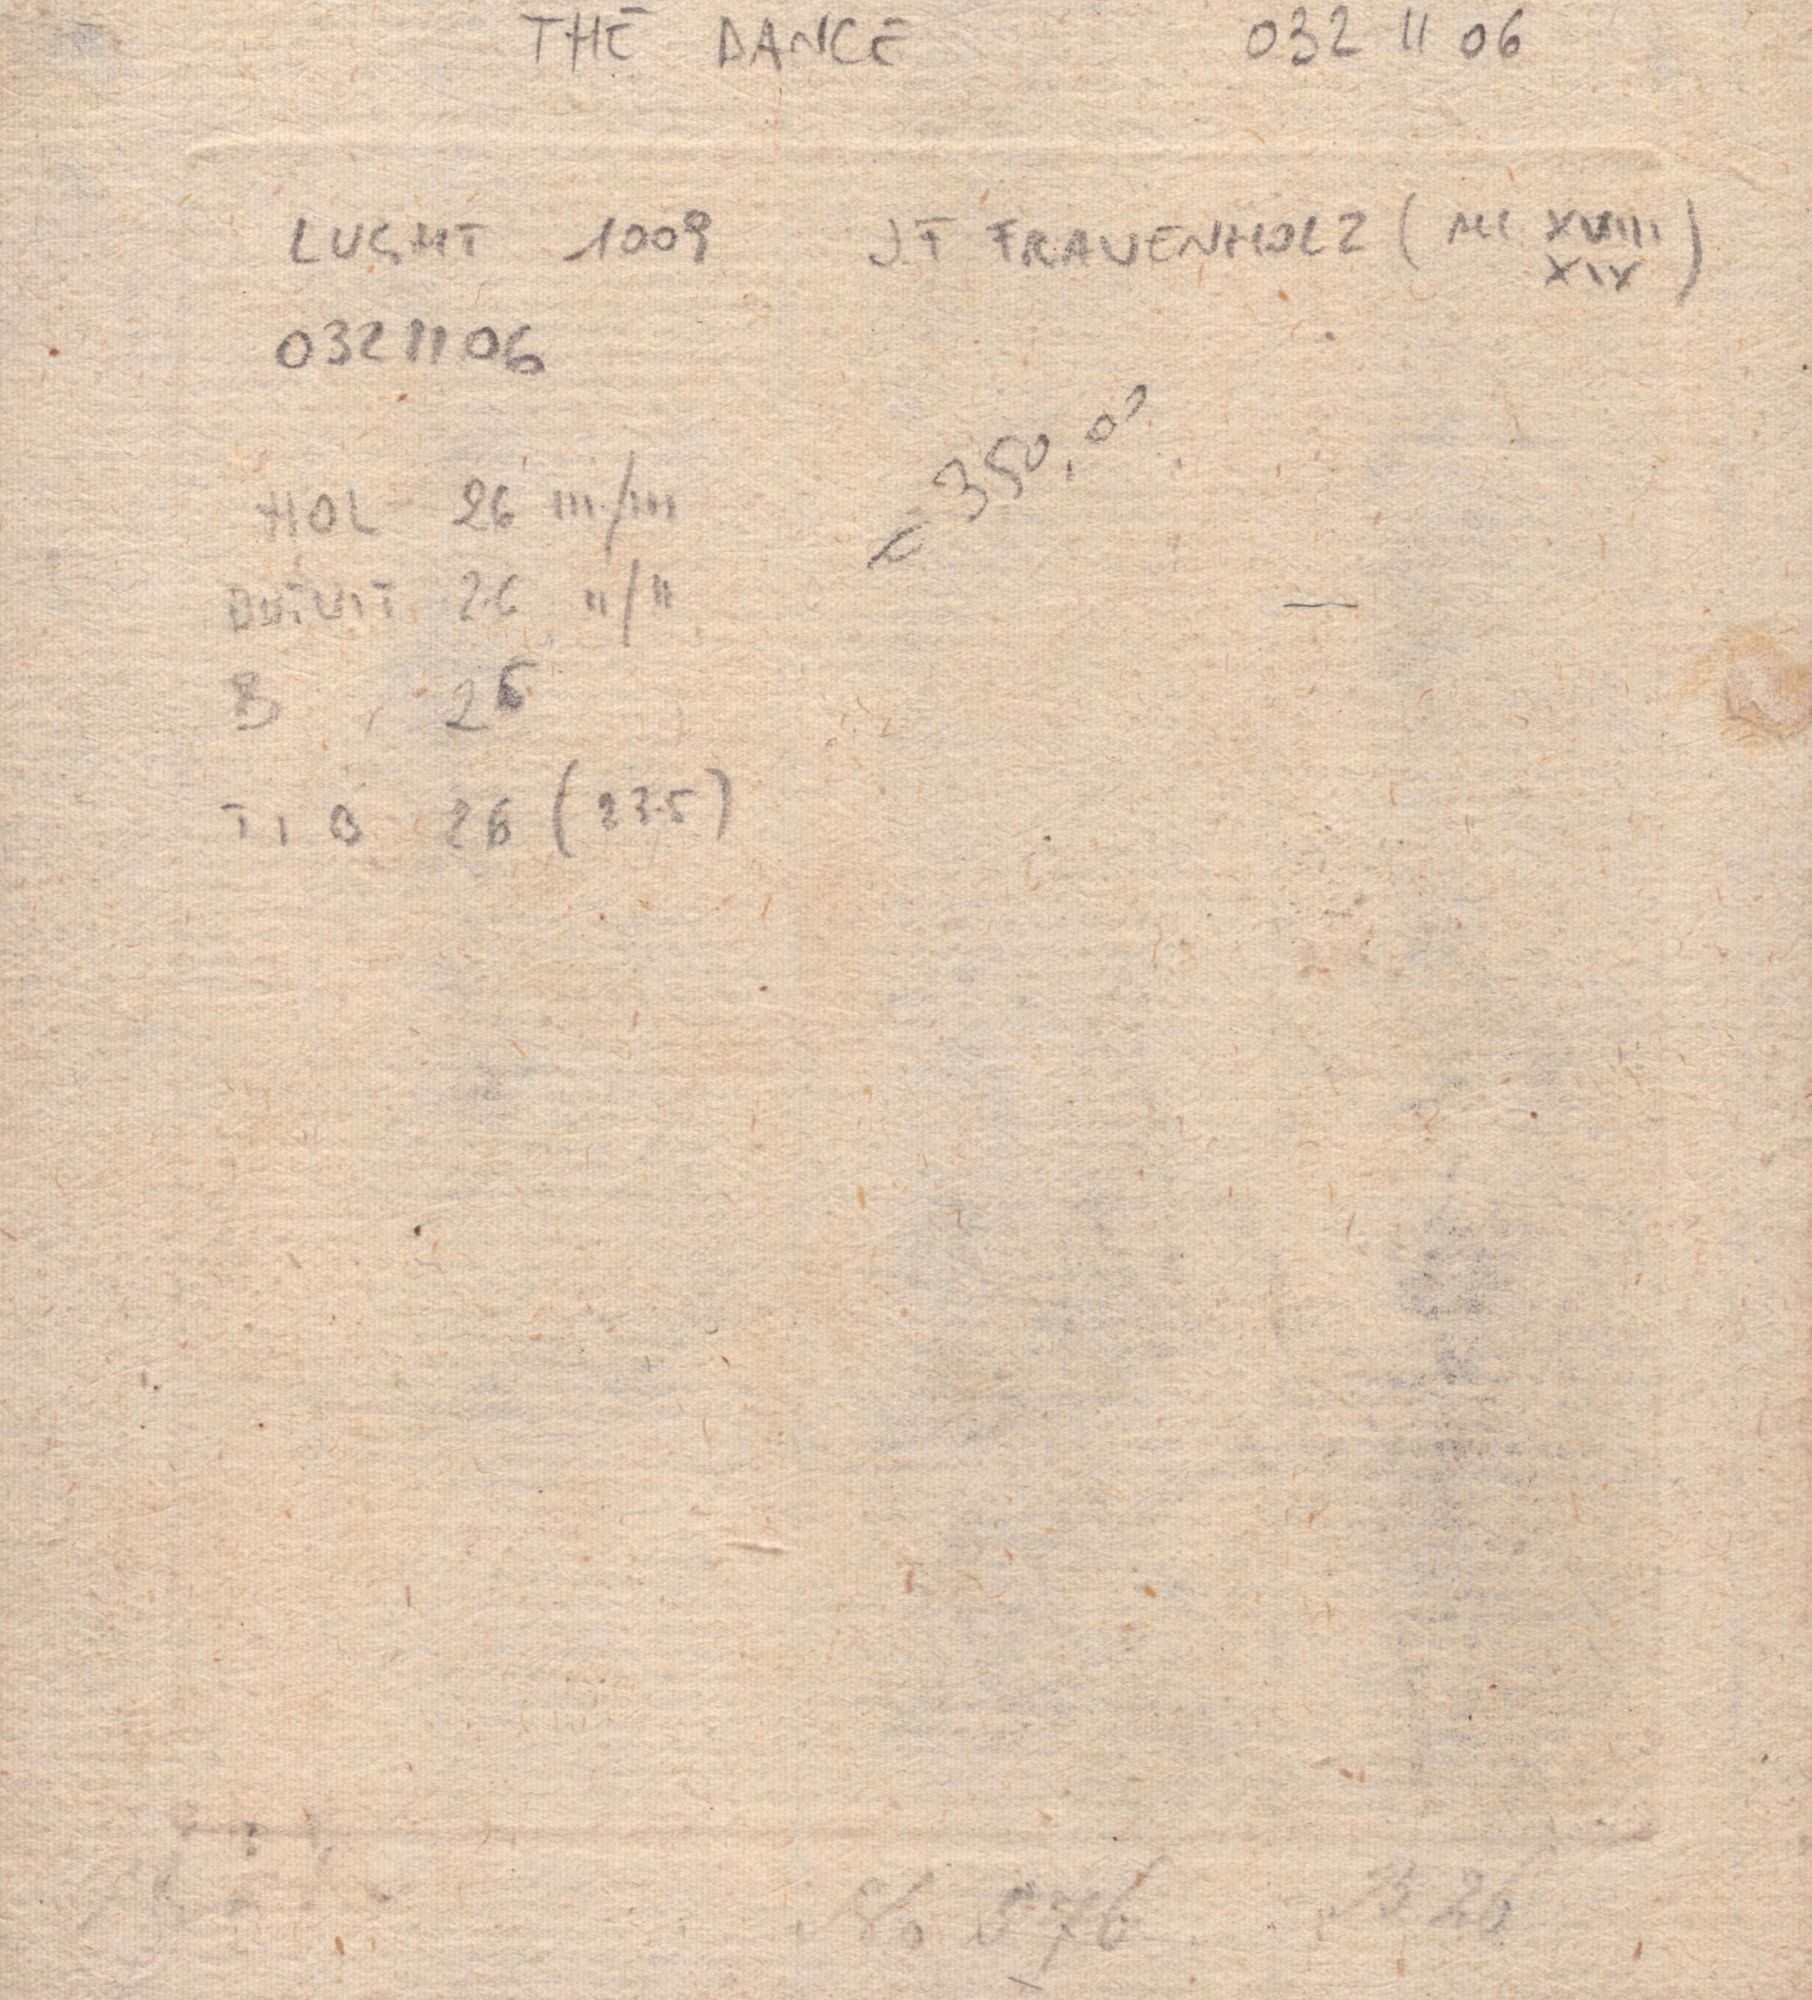 THE DANCE 032 11 06
LUGHT 1009 J.F FRAUENHOLZ ( XVIII
XIX )
0321106
350,00
HOL 26 III/III
DUTUIT 26 II/II
B 26
T I B 26 (275)
No 576 B 26